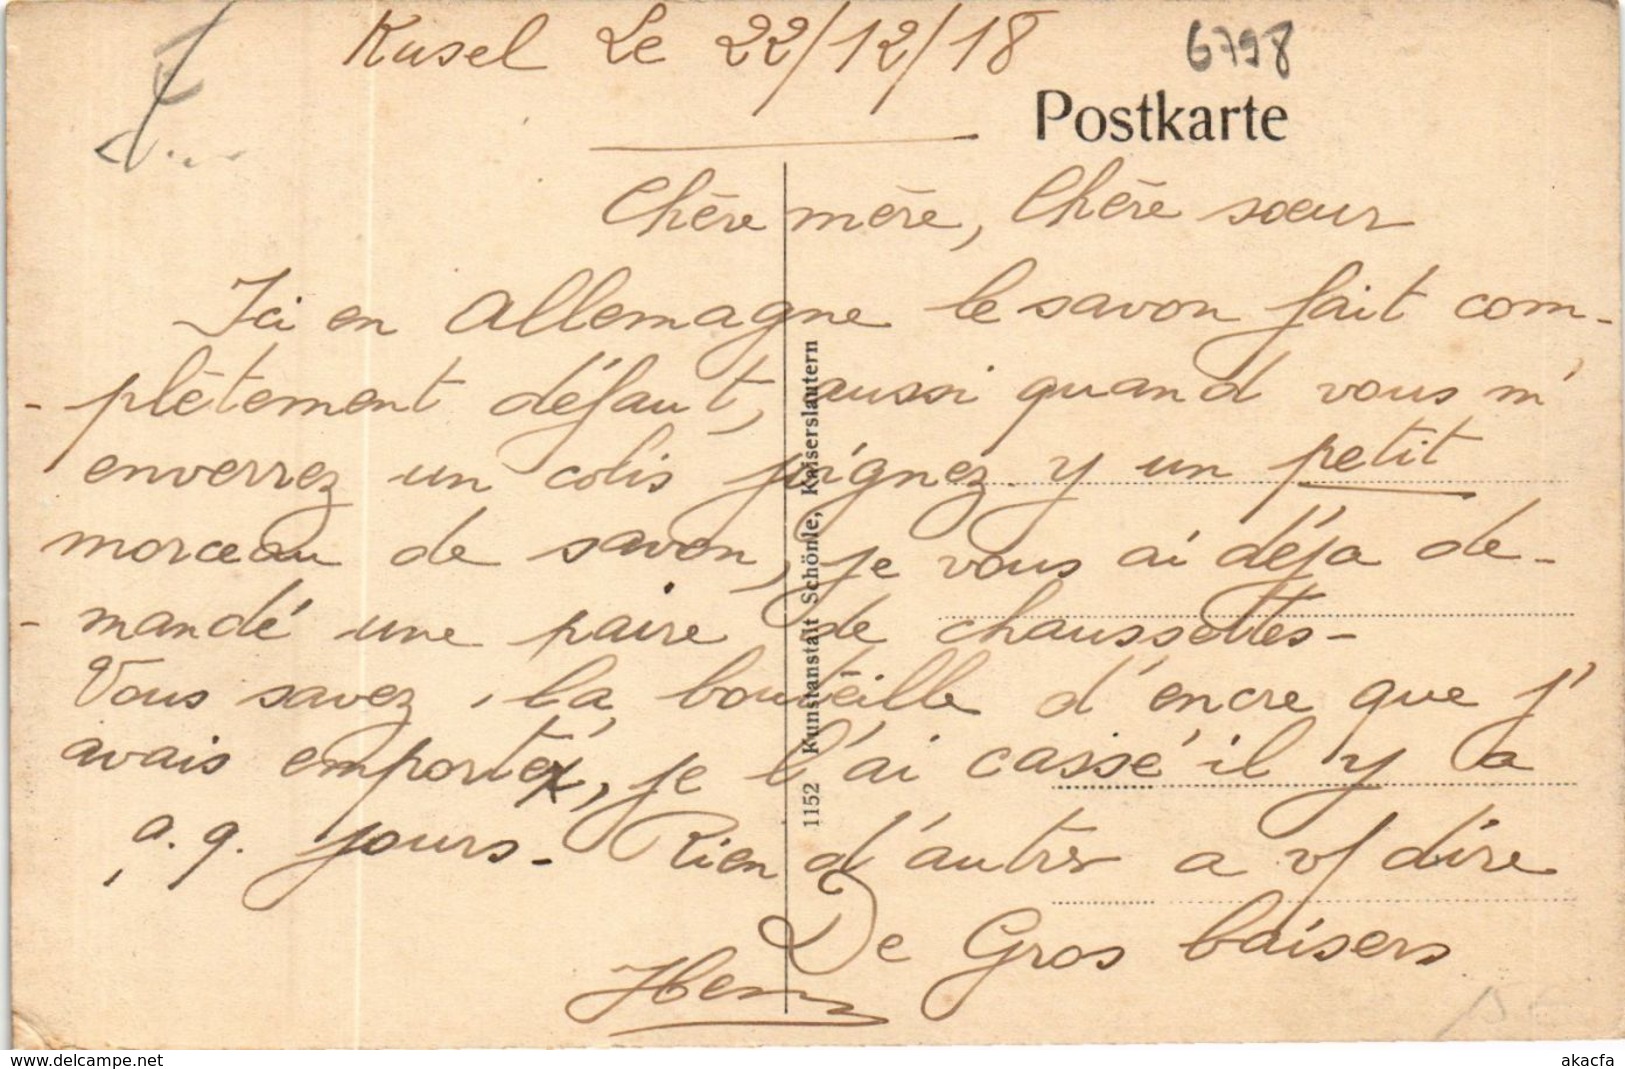 Kusel Le 22/12/18
6798
Postkarte
Chère mère, Chère sœur
Ici en Allemagne le savon fait com-
-plètement défaut, aussi quand vous m'
enverrez un colis joignez y un petit
morceau de savon, je vous ai déja de-
-mandé une paire de chaussettes-
Vous savez, la bouteille d'encre que j'
avais emporté, je l'ai cassé il y a
q.q. jours- Rien d'autres a v/ dire
De Gros baisers
Henry
1152 Kunstanstalt Schönle, Kaiserslautern
akacfa